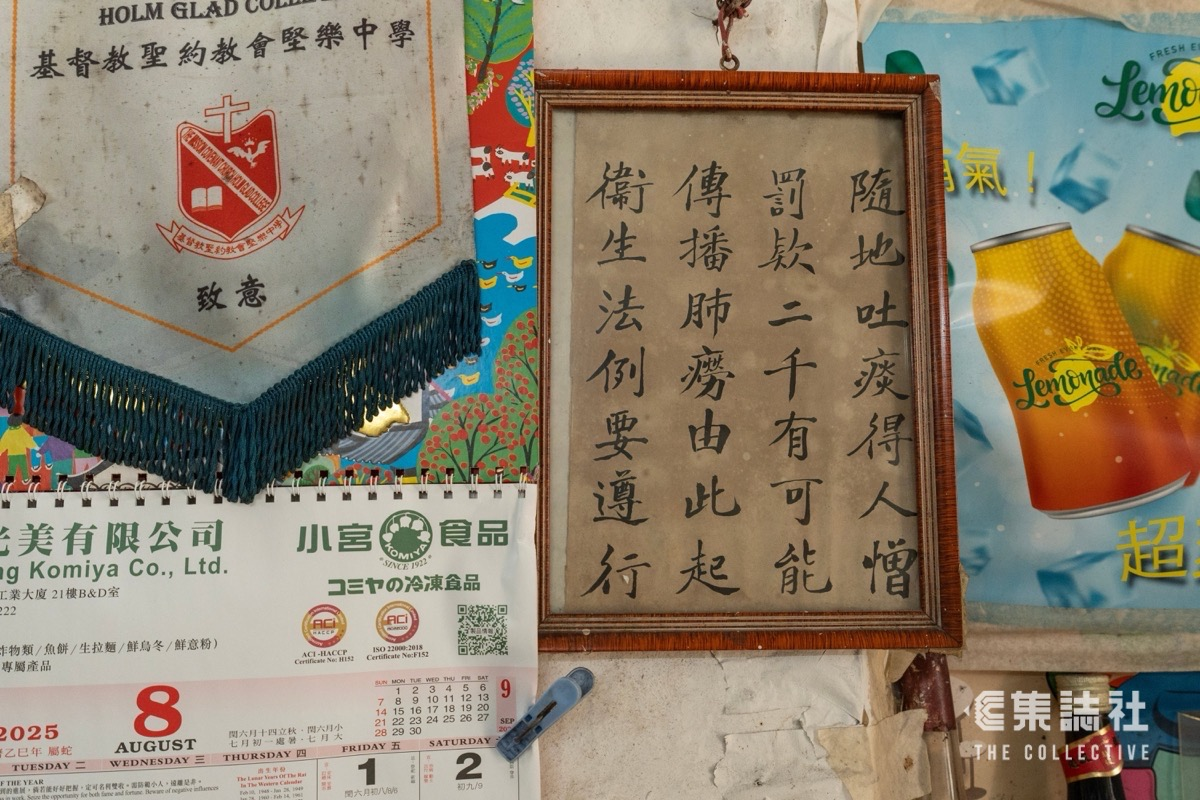 HOLM GLAD COLLE
基督教聖約教會堅樂中學
THE MISSION COVENANT CHURCH HOLM GLAD COLLEGE
基督教聖約教會堅樂中學
致意
隨地吐痰得人憎
罰欵二千有可能
傳播肺癆由此起
衞生法例要遵行
FRESH
Lemo
氣！
FRESH
Lemonade
超
光美有限公司
ng Komiya Co., Ltd.
工業大廈 21樓B&D室
222
炸物類/魚餅/生拉麵/鮮烏冬/鮮意粉)
專屬產品
小宮食品
KOMIYA
SINCE 1922
コミヤの冷凍食品
ACI
HACCP
ACI -HACCP
Certificate No: H152
ACI
ISO 22000:2018
Certificate No:F152
2025
乙巳年 屬蛇
8
AUGUST
閏六月十四立秋、閏六月小
七月初一處暑、七月大
SUN MON TUE WED THU FRI SAT
1 2 3 4 5 6
7 8 9 10 11 12 13
14 15 16 17 18 19 20
21 22 23 24 25 26 27
28 29 30
9
SEP
TUESDAY 二
WEDNESDAY 三
THURSDAY 四
FRIDAY 五
SATURDAY
OF THE YEAR
The Lunar Years Of The Rat
In The Western Calendar
1
閏六月初八/8/6
2
初九/9
集誌社
THE COLLECTIVE